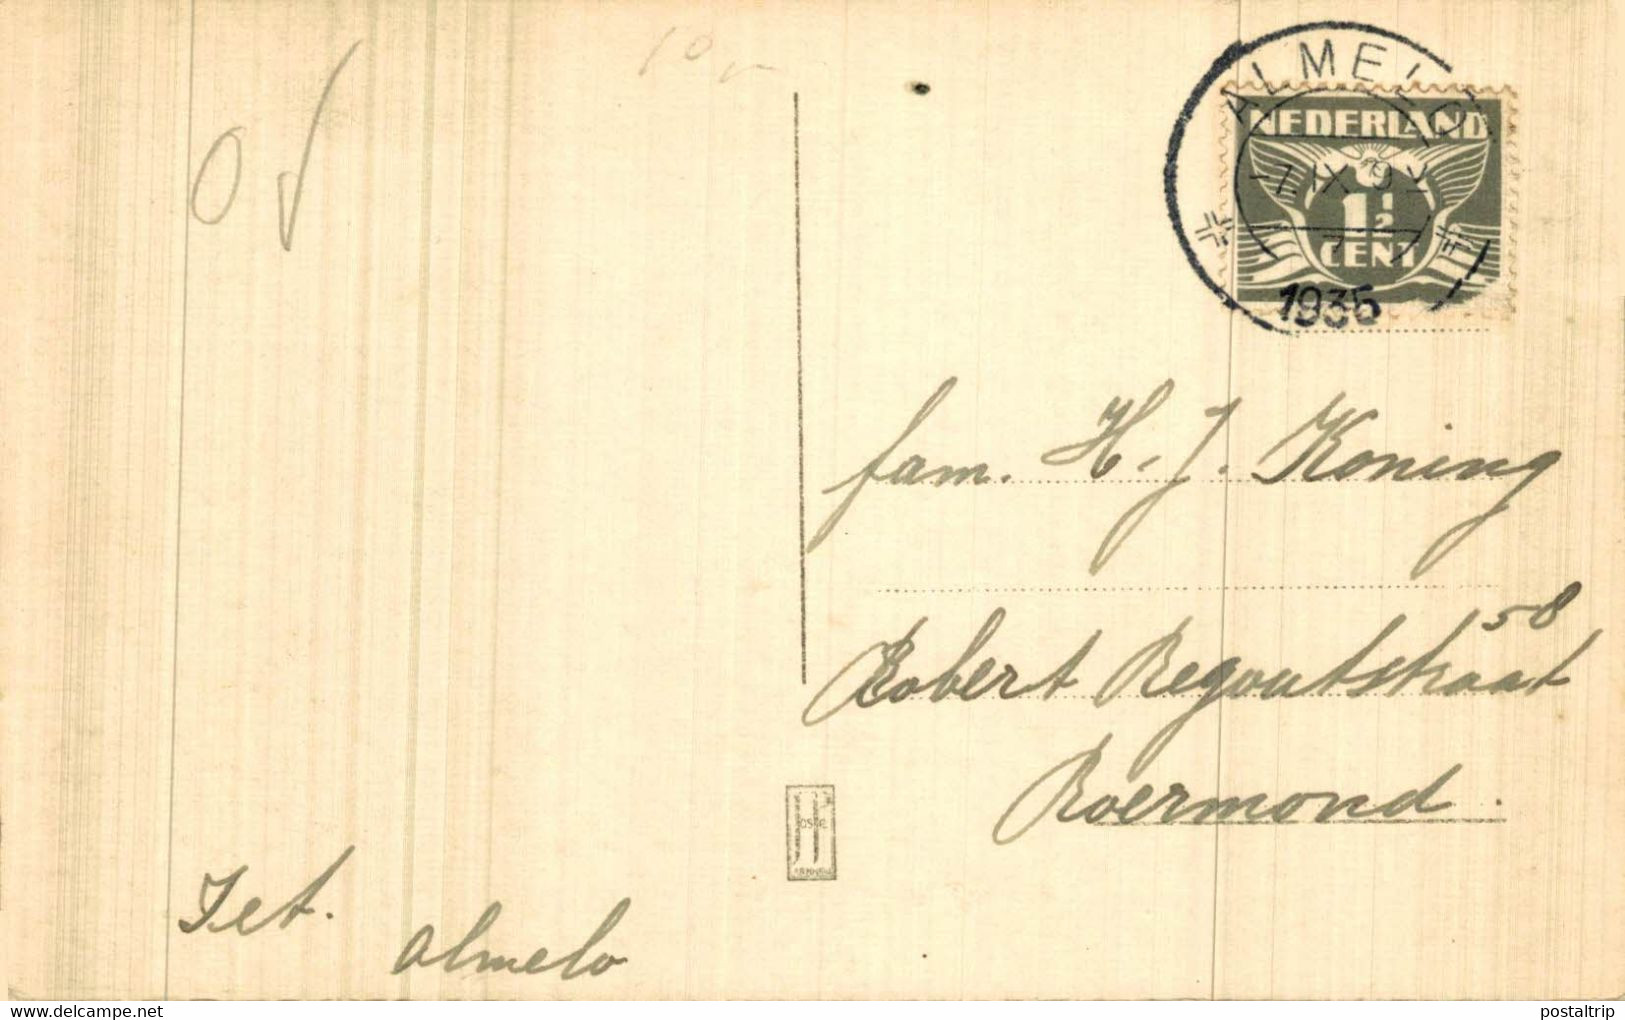 10,-
ALMELO
NEDERLAND
-7. IX. 9 V
1½
7
CENT
1935
fam. H. J. Koning
58
Robert Regoutstraat
Roermond.
Jet.
Almelo
Delcampe.net
postaltrip